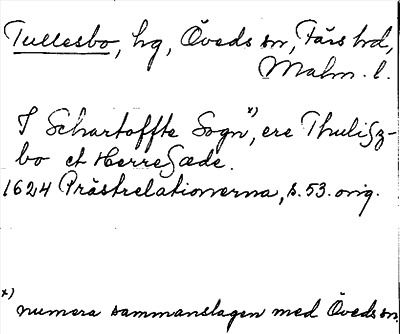 Tullesbo, hg, Öveds sn, Färs hd,
Malm. l.
I Schartoffte Sogn x), ere Thuligz-
bo et HerreSæde.
1624 Prästrelationerna, s. 53. orig.
x)
numera sammanslagen med Öveds sn.